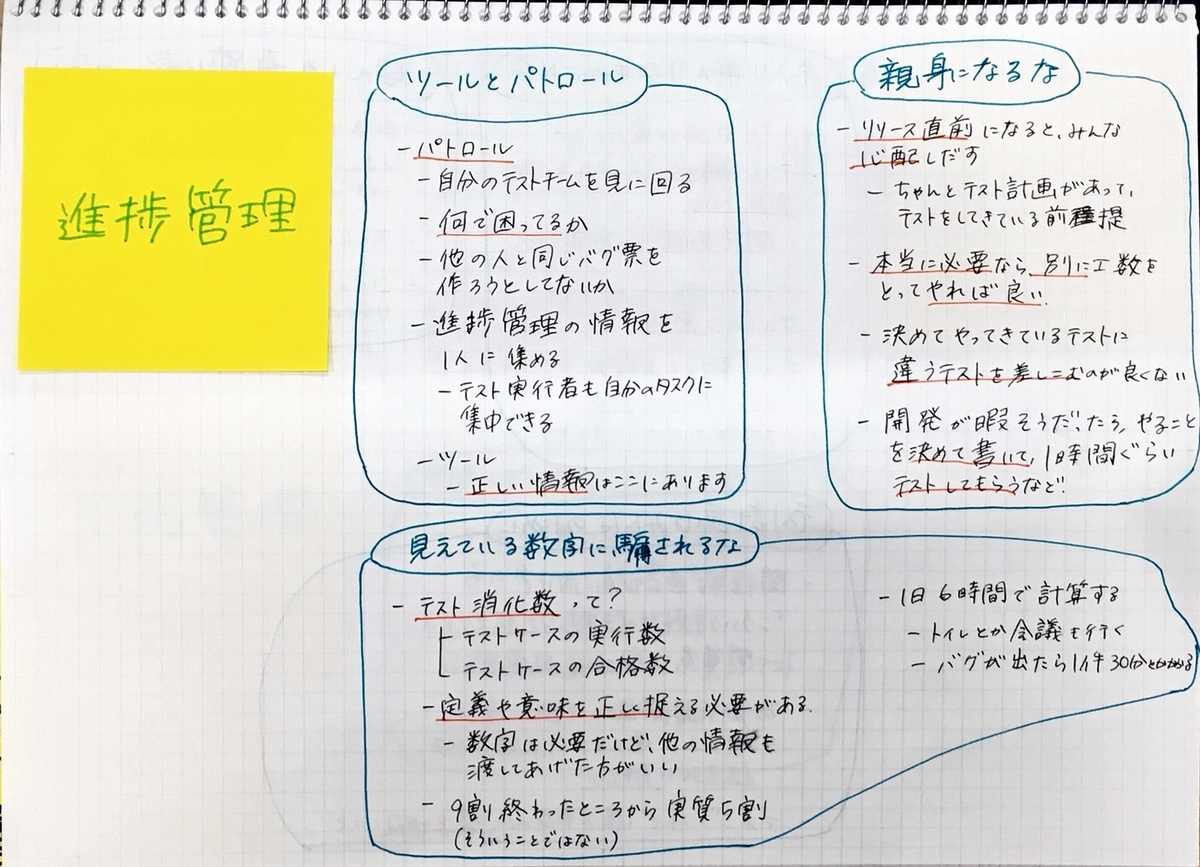 進捗管理
ツールとパトロール
- パトロール
- 自分のテストチームを見に回る
- 何で困ってるか
- 他の人と同じバグ票を
作ろうとしてないか
- 進捗管理の情報を
1人に集める
- テスト実行者も自分のタスクに
集中できる
- ツール
- 正しい情報はここにあります
親身になるな
- リリース直前になると、みんな
心配しだす
- ちゃんとテスト計画があって、
テストをしてきている前提
- 本当に必要なら、別に工数を
とってやれば良い.
- 決めてやってきているテストに
違うテストを差しこむのが良くない
- 開発が暇そうだったら、やること
を決めて書いて、1時間ぐらい
テストしてもらうなど!
見えている数字に騙されるな
- テスト消化数って?
テストケースの実行数
テストケースの合格数
- 定義や意味を正しく捉える必要がある.
- 数字は必要だけど、他の情報も
渡してあげた方がいい
- 9割終わったところから実質5割
(そういうことではない)
- 1日6時間で計算する
- トイレとか会議も行く
- バグが出たら1件30分とかかかる